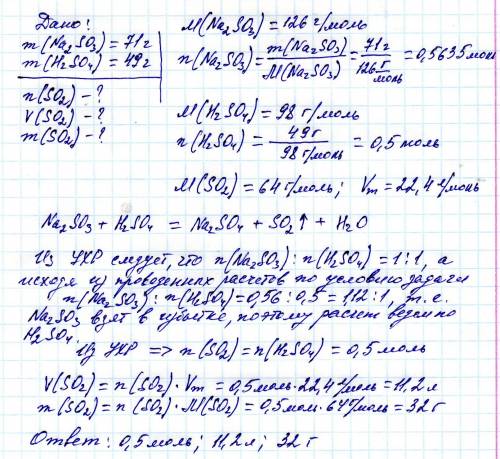 Дано:
m(Na2SO3) = 71г
m(H2SO4) = 49г
n(SO2) - ?
V(SO2) - ?
m(SO2) - ?
M(Na2SO3) = 126 г/моль
n(Na2SO3) = m(Na2SO3)/M(Na2SO3) = 71г/126 г/моль = 0,5635 моль
M(H2SO4) = 98 г/моль
n(H2SO4) = 49г/98 г/моль = 0,5 моль
M(SO2) = 64 г/моль; Vm = 22,4 л/моль
Na2SO3 + H2SO4 = Na2SO4 + SO2↑ + H2O
Из УХР следует, что n(Na2SO3) : n(H2SO4) = 1:1, а
исходя из проведенных расчетов по условию задачи
n(Na2SO3) : n(H2SO4) = 0,56 : 0,5 = 1,12 : 1, т.е.
Na2SO3 взят в избытке, поэтому расчет ведем по
H2SO4.
Из УХР => n(SO2) = n(H2SO4) = 0,5 моль
V(SO2) = n(SO2) · Vm = 0,5 моль · 22,4 л/моль = 11,2 л
m(SO2) = n(SO2) · M(SO2) = 0,5 мол · 64 г/моль = 32 г
Ответ: 0,5 моль; 11,2 л; 32 г